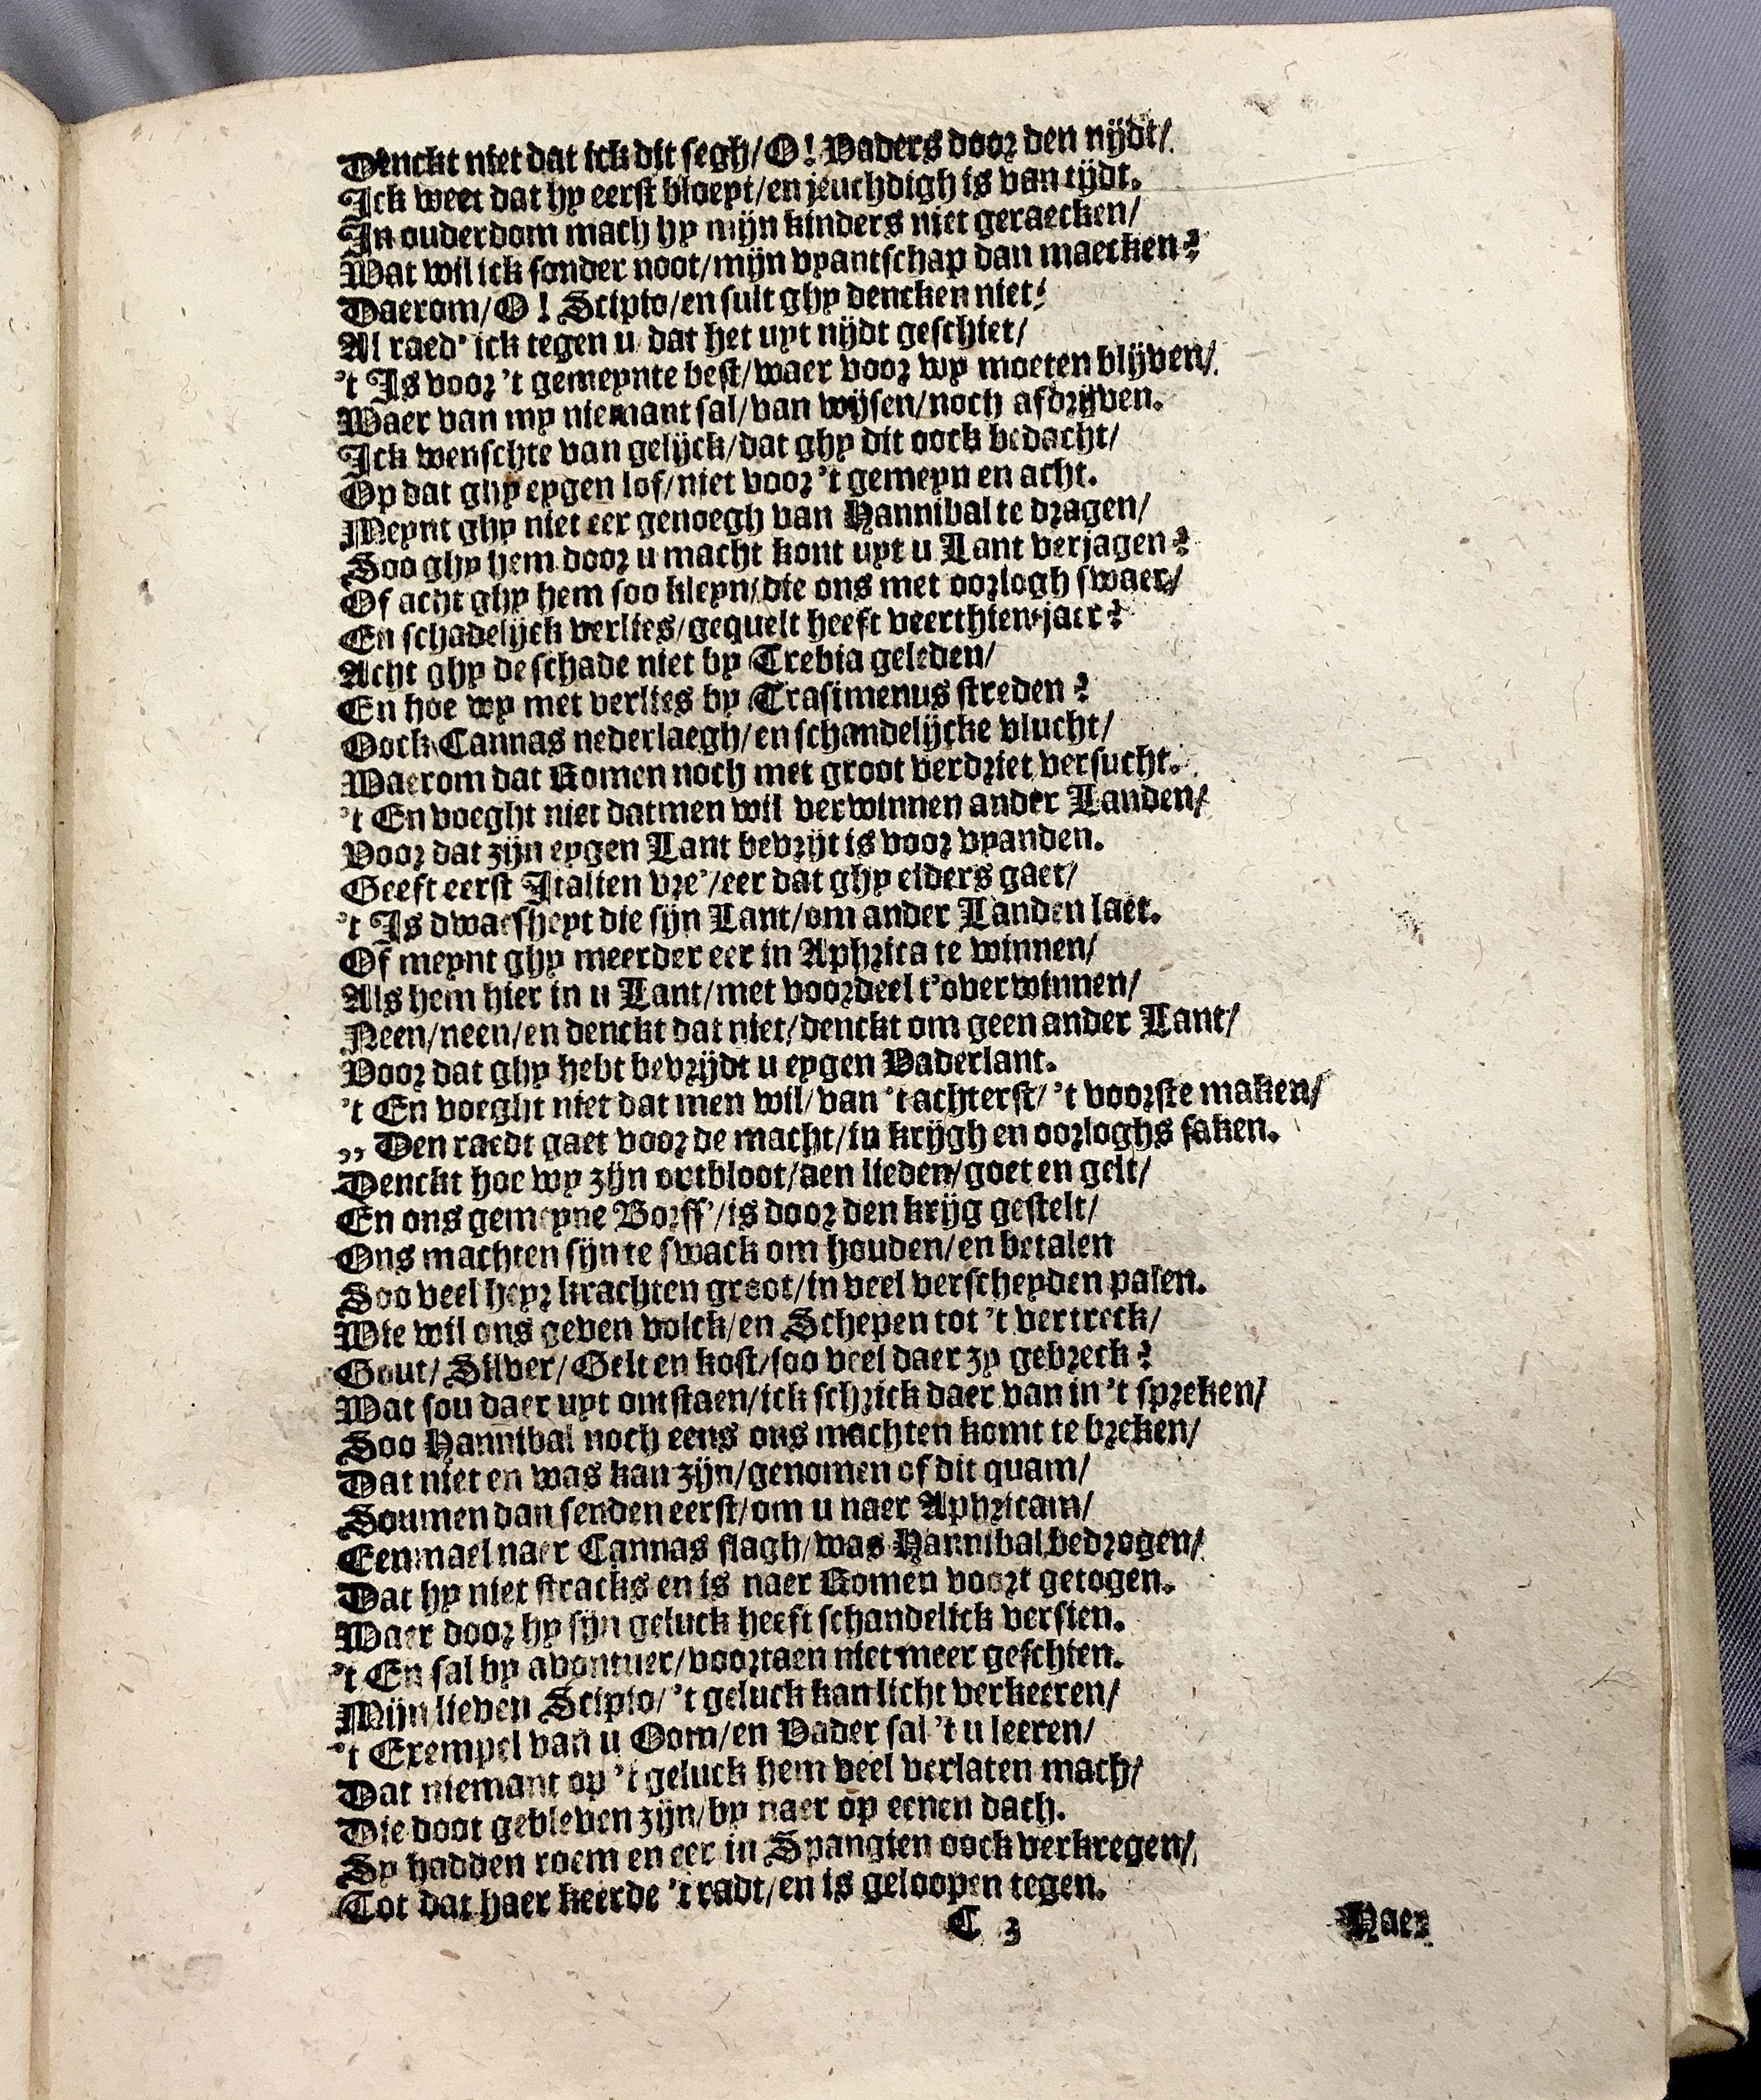 Denckt niet dat ick dit segh/O! Vaders door den nijdt/
Ick weet dat hy eerst bloeyt/en jeuchdigh is van tijdt.
In ouderdom mach hy mijn kinders niet geraecken/
Wat wil ick sonder noot/mijn vyantschap dan maecken?
Daerom/O! Scipio/en sult ghy dencken niet/
Al raed' ick tegen u/dat het uyt nijdt geschiet/
't Is voor 't gemeynte best/waer voor wy moeten blijven/
Waer van my niemant sal/van wijsen/noch afdrijven.
Ick wenschte van gelijck/dat ghy dit oock bedacht/
Op dat ghy eygen lof/niet voor 't gemeyn en acht.
Meynt ghy niet eer genoegh van Hannibal te dragen/
Soo ghy hem door u macht kont uyt u Lant verjagen?
Of acht ghy hem soo kleyn/die ons met oorlogh swaer/
En schadelijck verlies/gequelt heeft veerthien jaer?
Acht ghy de schade niet by Trebia geleden/
En hoe wy met verlies by Trasimenus streden?
Oock Cannas nederlaegh/en schandelijcke vlucht/
Waerom dat Romen noch met groot verdriet versucht.
't En voeght niet datmen wil verwinnen ander Landen/
Voor dat zijn eygen Lant bevrijt is voor vyanden.
Geeft eerst Italien vre'/eer dat ghy elders gaet/
't Is dwaesheyt die sijn Lant/om ander Landen laet.
Of meynt ghy meerder eer in Aphrica te winnen/
Als hem hier in u Lant/met voordeel t'overwinnen/
Neen/neen/en denckt dat niet/denckt om geen ander Lant/
Voor dat ghy hebt bevrijdt u eygen Vaderlant.
't En voeght niet dat men wil/van 't achterst/'t voorste maken/
,, Den raedt gaet voor de macht/in krijgh en oorloghs saken.
Denckt hoe wy zijn ontbloot/aen lieden/goet en gelt/
En ons gemeyne Borss'/is door den krijg gestelt/
Ons machten sijn te swack om houden/en betalen
Soo veel heyr krachten groot/in veel verscheyden palen.
Wie wil ons geven volck/en Schepen tot 't vertreck/
Gout/Silver/Gelt en kost/soo veel daer zy gebreck?
Wat sou daer uyt ontstaen/ick schrick daer van in 't spreken/
Soo Hannibal noch eens ons machten komt te breken/
Dat niet en was kan zijn/genomen of dit quam/
Soumen dan senden eerst/om u naer Aphricam/
Eenmael naer Cannas slagh/was Hannibal bedrogen/
Dat hy niet stracks en is naer Romen voort getogen.
Waer door hy sijn geluck heeft schandelick versien.
't En sal by avontuer/voortaen niet meer geschien.
Mijn lieven Scipio/'t geluck kan licht verkeeren/
't Exempel van u Oom/en Vader sal 't u leeren/
Dat niemant op 't geluck hem veel verlaten mach/
Die doot gebleven zijn/by naer op eenen dach.
Sy hadden roem en eer in Spangien oock verkregen/
Tot dat haer keerde 't radt/en is geloopen tegen.
C 3 Haer